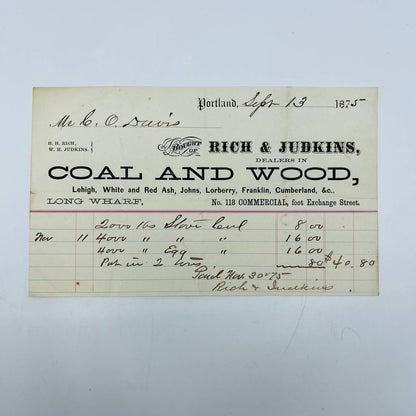 Portland, Sept 13 1875
Mr C. O. Davis
H. H. RICH,
W. H. JUDKINS.
BOUGHT OF RICH & JUDKINS,
DEALERS IN
COAL AND WOOD,
Lehigh, White and Red Ash, Johns, Lorberry, Franklin, Cumberland, &c.
LONG WHARF, No. 118 COMMERCIAL, foot Exchange Street.
2000 lbs Stove Coal 8 00
Nov 11 4000 " " " 16 00
4000 " Egg " 16 00
Put in 2 80 $40.80
Paid Nov. 30 75
Rich & Judkins